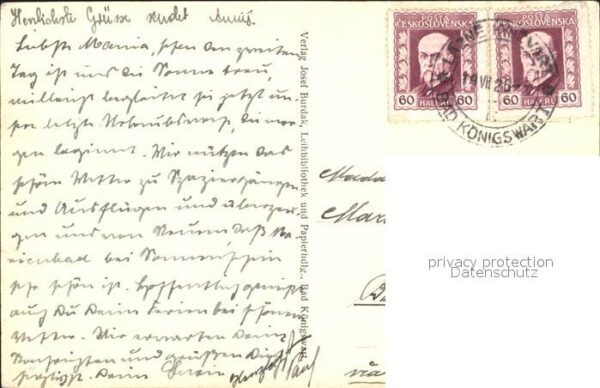 Herzlichste Grüsse sendet Anni.
Liebste Mama, schon den zweiten
Tag ist uns die Sonne treu,
vielleicht begleitet sie jetzt un-
sere letzte Urlaubswoche, die mor-
gen beginnt. Wir nützen das
schöne Wetter zu Spaziergängen
und Ausflügen und überzeu-
gen uns von Neuem, daß Ma-
rienbad bei Sonnenschein
sehr schön ist. Hoffentlich
auch Du Deine Ferien bei schönem
Wetter. Wir erwarten Deine
Nachrichten und grüßen Dich
herzlichst. Deine
Verlag Josef Burdak, Leihbibliothek und Papierhdlg., Bad Königswart.
POSTA POSTA
ČESKOSLOVENSKÁ ČESKOSLOVENSKÁ
60 HALÉŘŮ 60 60 HALÉŘŮ 60
LÁZNĚ
VII 26
BAD KÖNIGSWART
Mada
Mar
via
privacy protection
Datenschutz